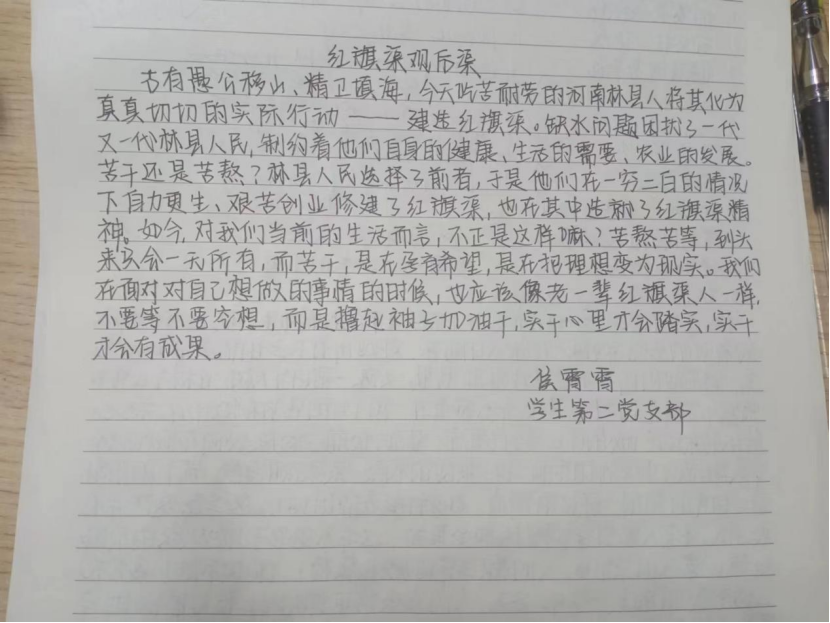 红旗渠观后渠
古有愚公移山、精卫填海，今天吃苦耐劳的河南林县人将其化为
真真切切的实际行动——建造红旗渠。缺水问题困扰了一代
又一代林县人民，制约着他们自身的健康、生活的需要、农业的发展。
苦干还是苦熬？林县人民选择了前者，于是他们在一穷二白的情况
下自力更生、艰苦创业修建了红旗渠，也在其中造就了红旗渠精
神。如今，对我们当前的生活而言，不正是这样嘛？苦熬苦等，到头
来只会一无所有，而苦干，是在孕育希望，是在把理想变为现实。我们
在面对对自己想做的事情的时候，也应该像老一辈红旗渠人一样，
不要等不要空想，而是撸起袖子加油干，实干心里才会踏实，实干
才会有成果。
侯霄霄
学生第二党支部